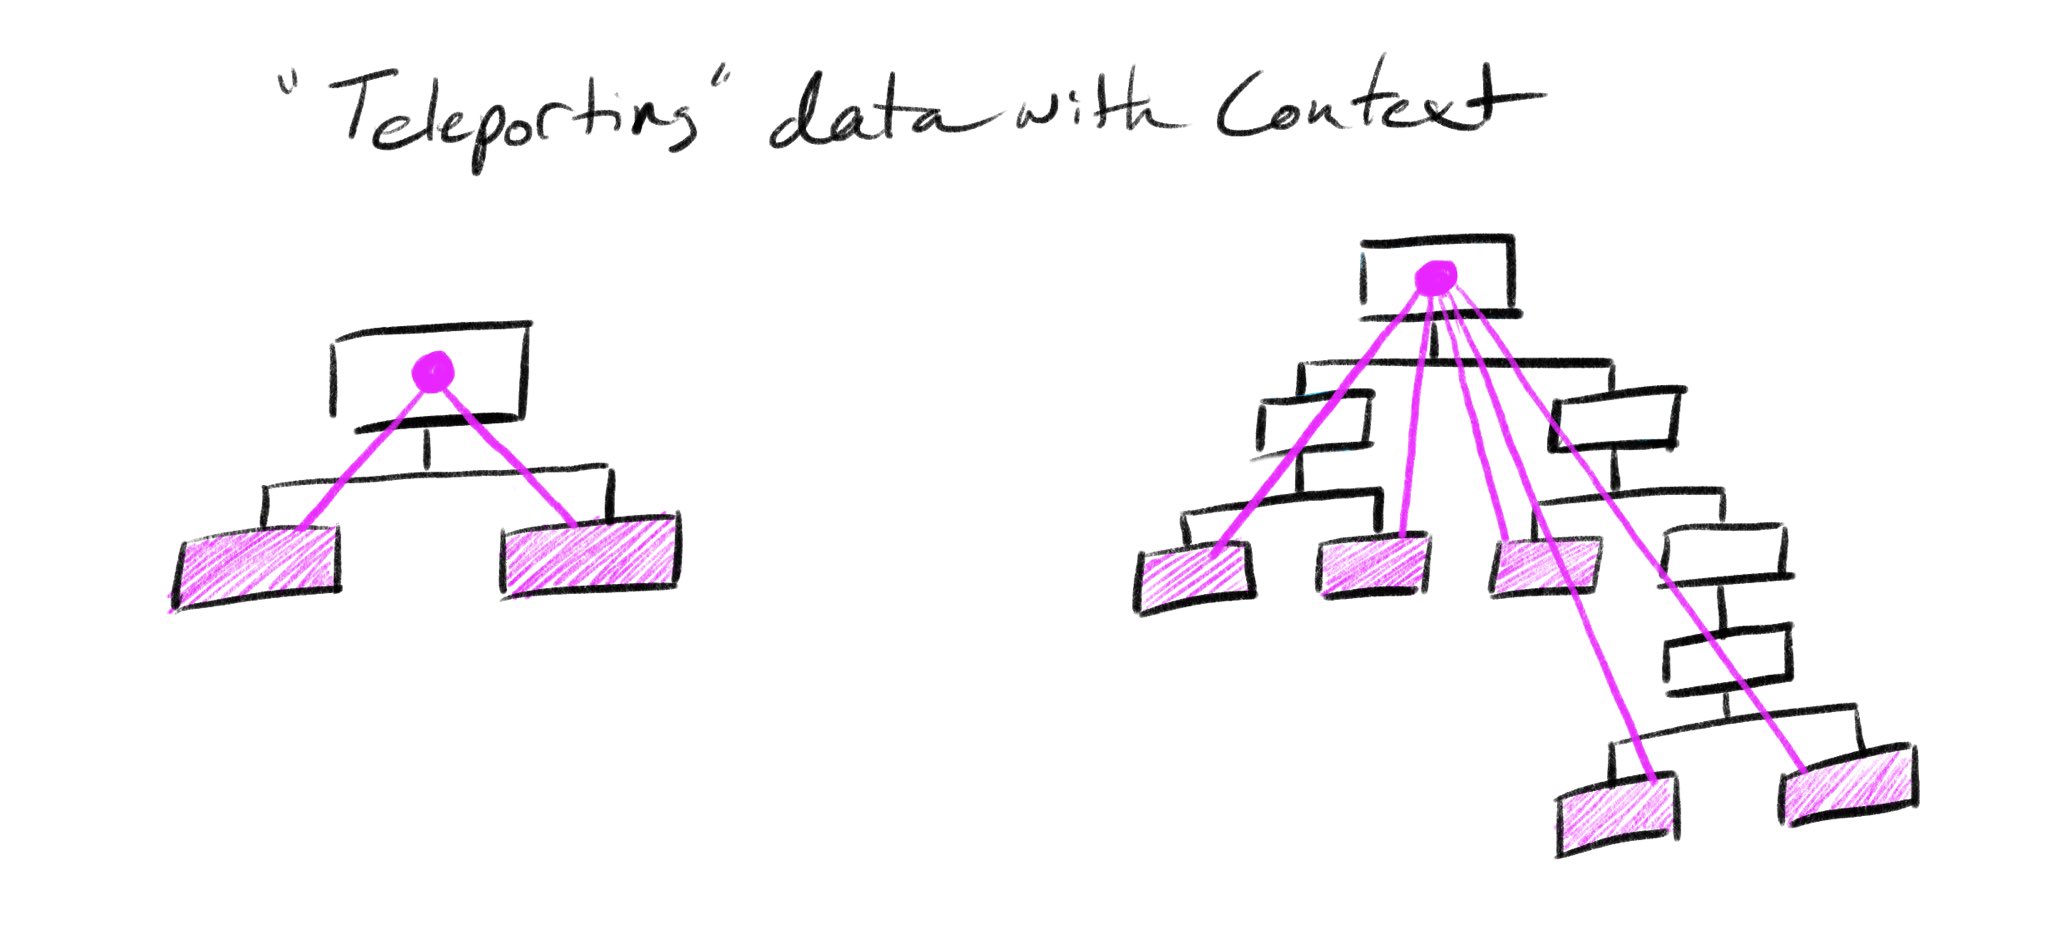 "Teleporting" data with Context